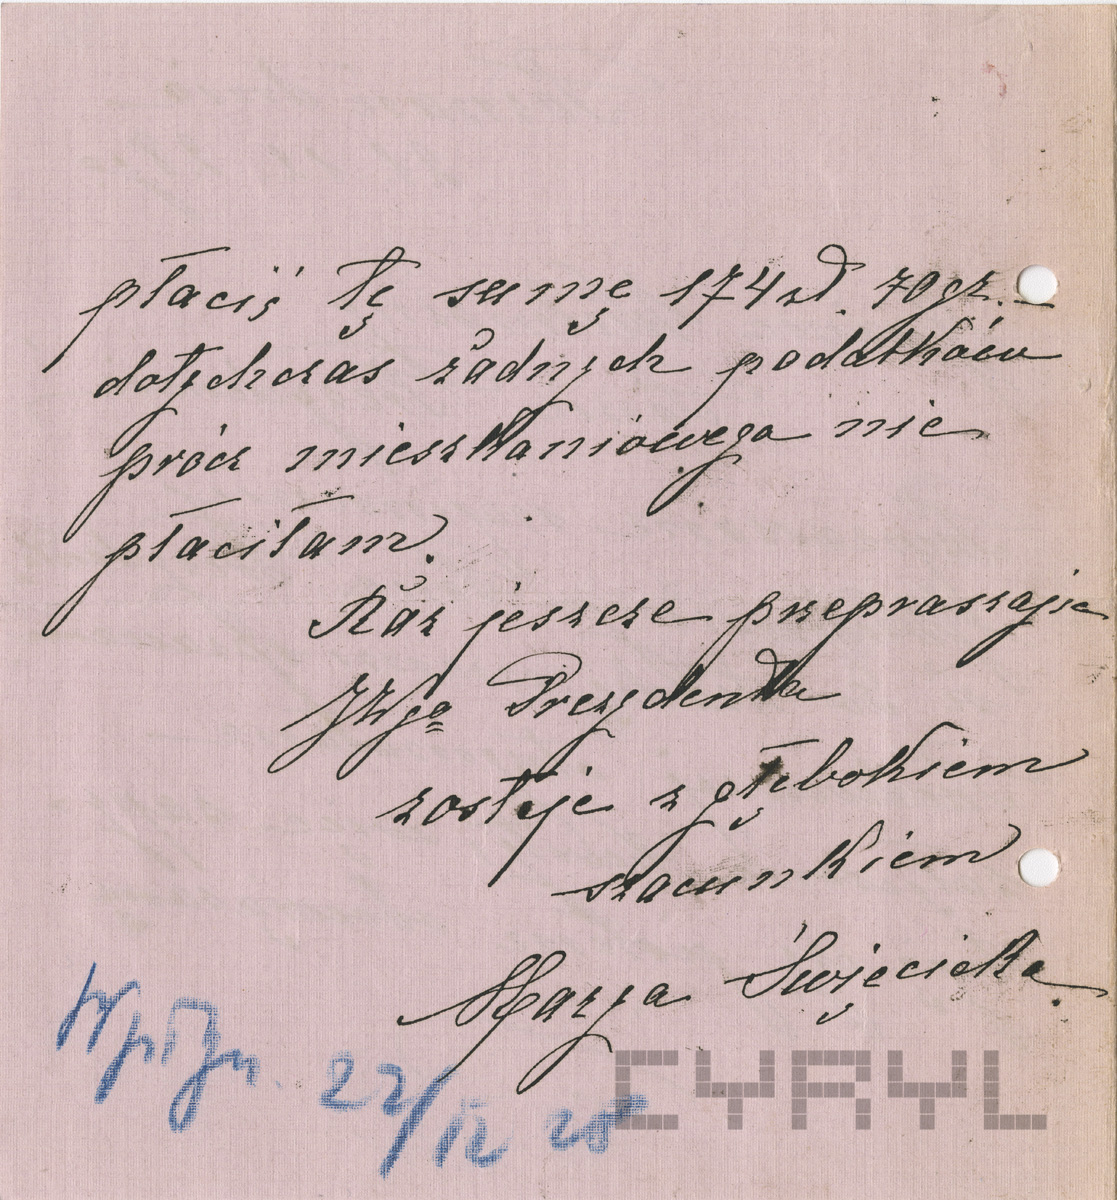 płacić tę sumę 174 zł. 70 gr. –
dotychczas żadnych podatków
prócz mieszkaniowego nie
płaciłam.
Raz jeszcze przepraszając
JWgo Prezydenta
zostaję z głębokiem
szacunkiem
Marya Święcicka.
Wpłyn. 22/12 28
CYRYL